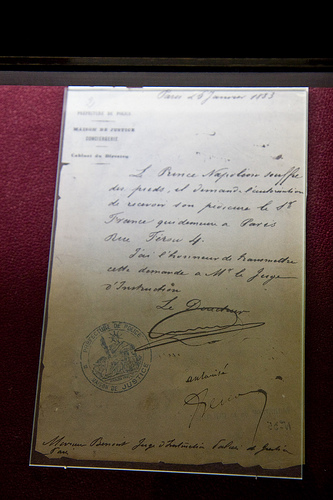 Paris le 6 Janvier 1883
PREFECTURE DE POLICE
MAISON DE JUSTICE
CONCIERGERIE
Cabinet du Directeur
Le Prince Napoléon souffre
des pieds, et demande l'autorisation
de recevoir son pédicure le Sr
France qui demeure à Paris
Rue Férou 4.
J'ai l'honneur de transmettre
cette demande à Mr le Juge
d'Instruction
Le Directeur
PREFECTURE DE POLICE
MAISON DE JUSTICE
autorisé
Monsieur Benoit Juge d'Instruction Palais de Justice
Paris